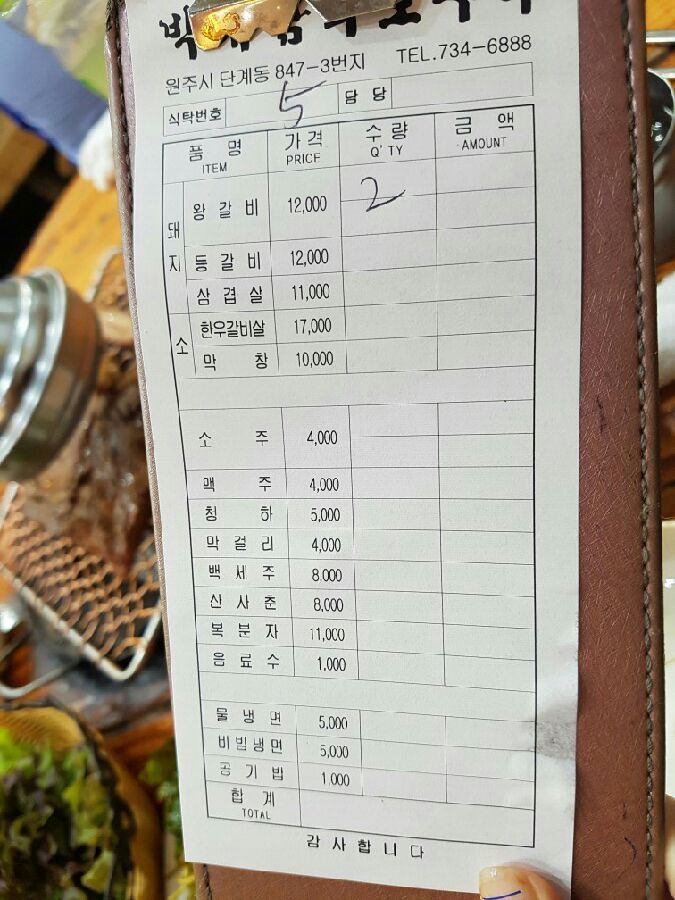 원주시 단계동 847-3번지 TEL.734-6888
식탁번호 5 담당
품명 가격 수량 금액
ITEM PRICE Q'TY AMOUNT
돼지
왕갈비 12,000 2
등갈비 12,000
삼겹살 11,000
소
한우갈비살 17,000
막창 10,000
소주 4,000
맥주 4,000
청하 5,000
막걸리 4,000
백세주 8,000
산사춘 8,000
복분자 11,000
음료수 1,000
물냉면 5,000
비빔냉면 5,000
공기밥 1,000
합계
TOTAL
감사합니다